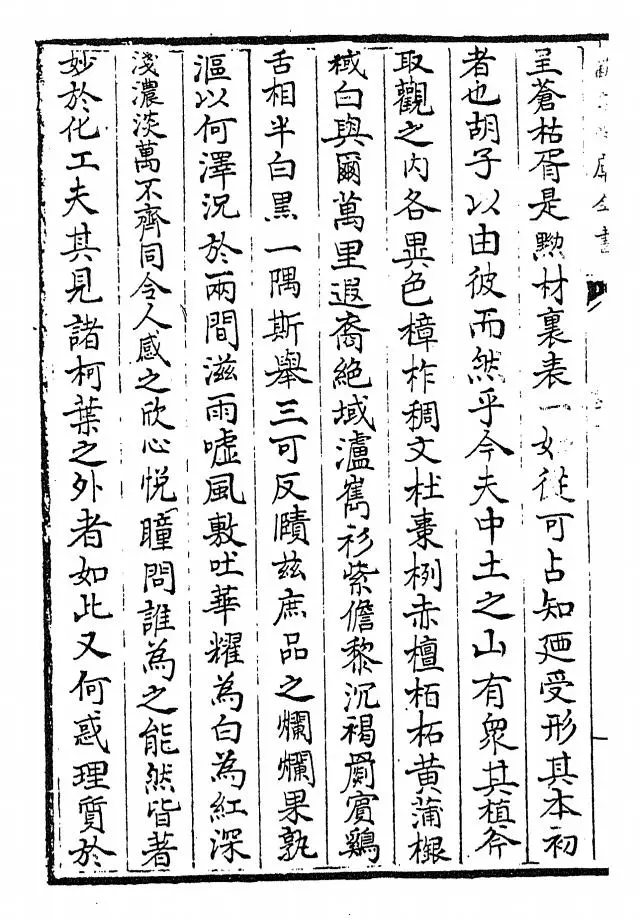 呈蒼枯胥是黝材裏表一如從可占知廼受形其本初
者也胡子以由彼而然乎今夫中土之山有衆其植斧
取觀之内各異色樟柞稠文杜棗栵赤檀栢柘黄蒲櫬
棫白與爾萬里遐裔絶域瀘嶲衫紫儋黎沉褐罽賓鷄
舌相半白黒一隅斯舉三可反賾兹庶品之爛爛果孰
漚以何澤況於兩間滋雨嘘風敷吐華耀為白為紅深
淺濃淡萬不齊同令人感之欣心悦瞳問誰為之能然皆著
妙於化工夫其見諸柯葉之外者如此又何惑理質於